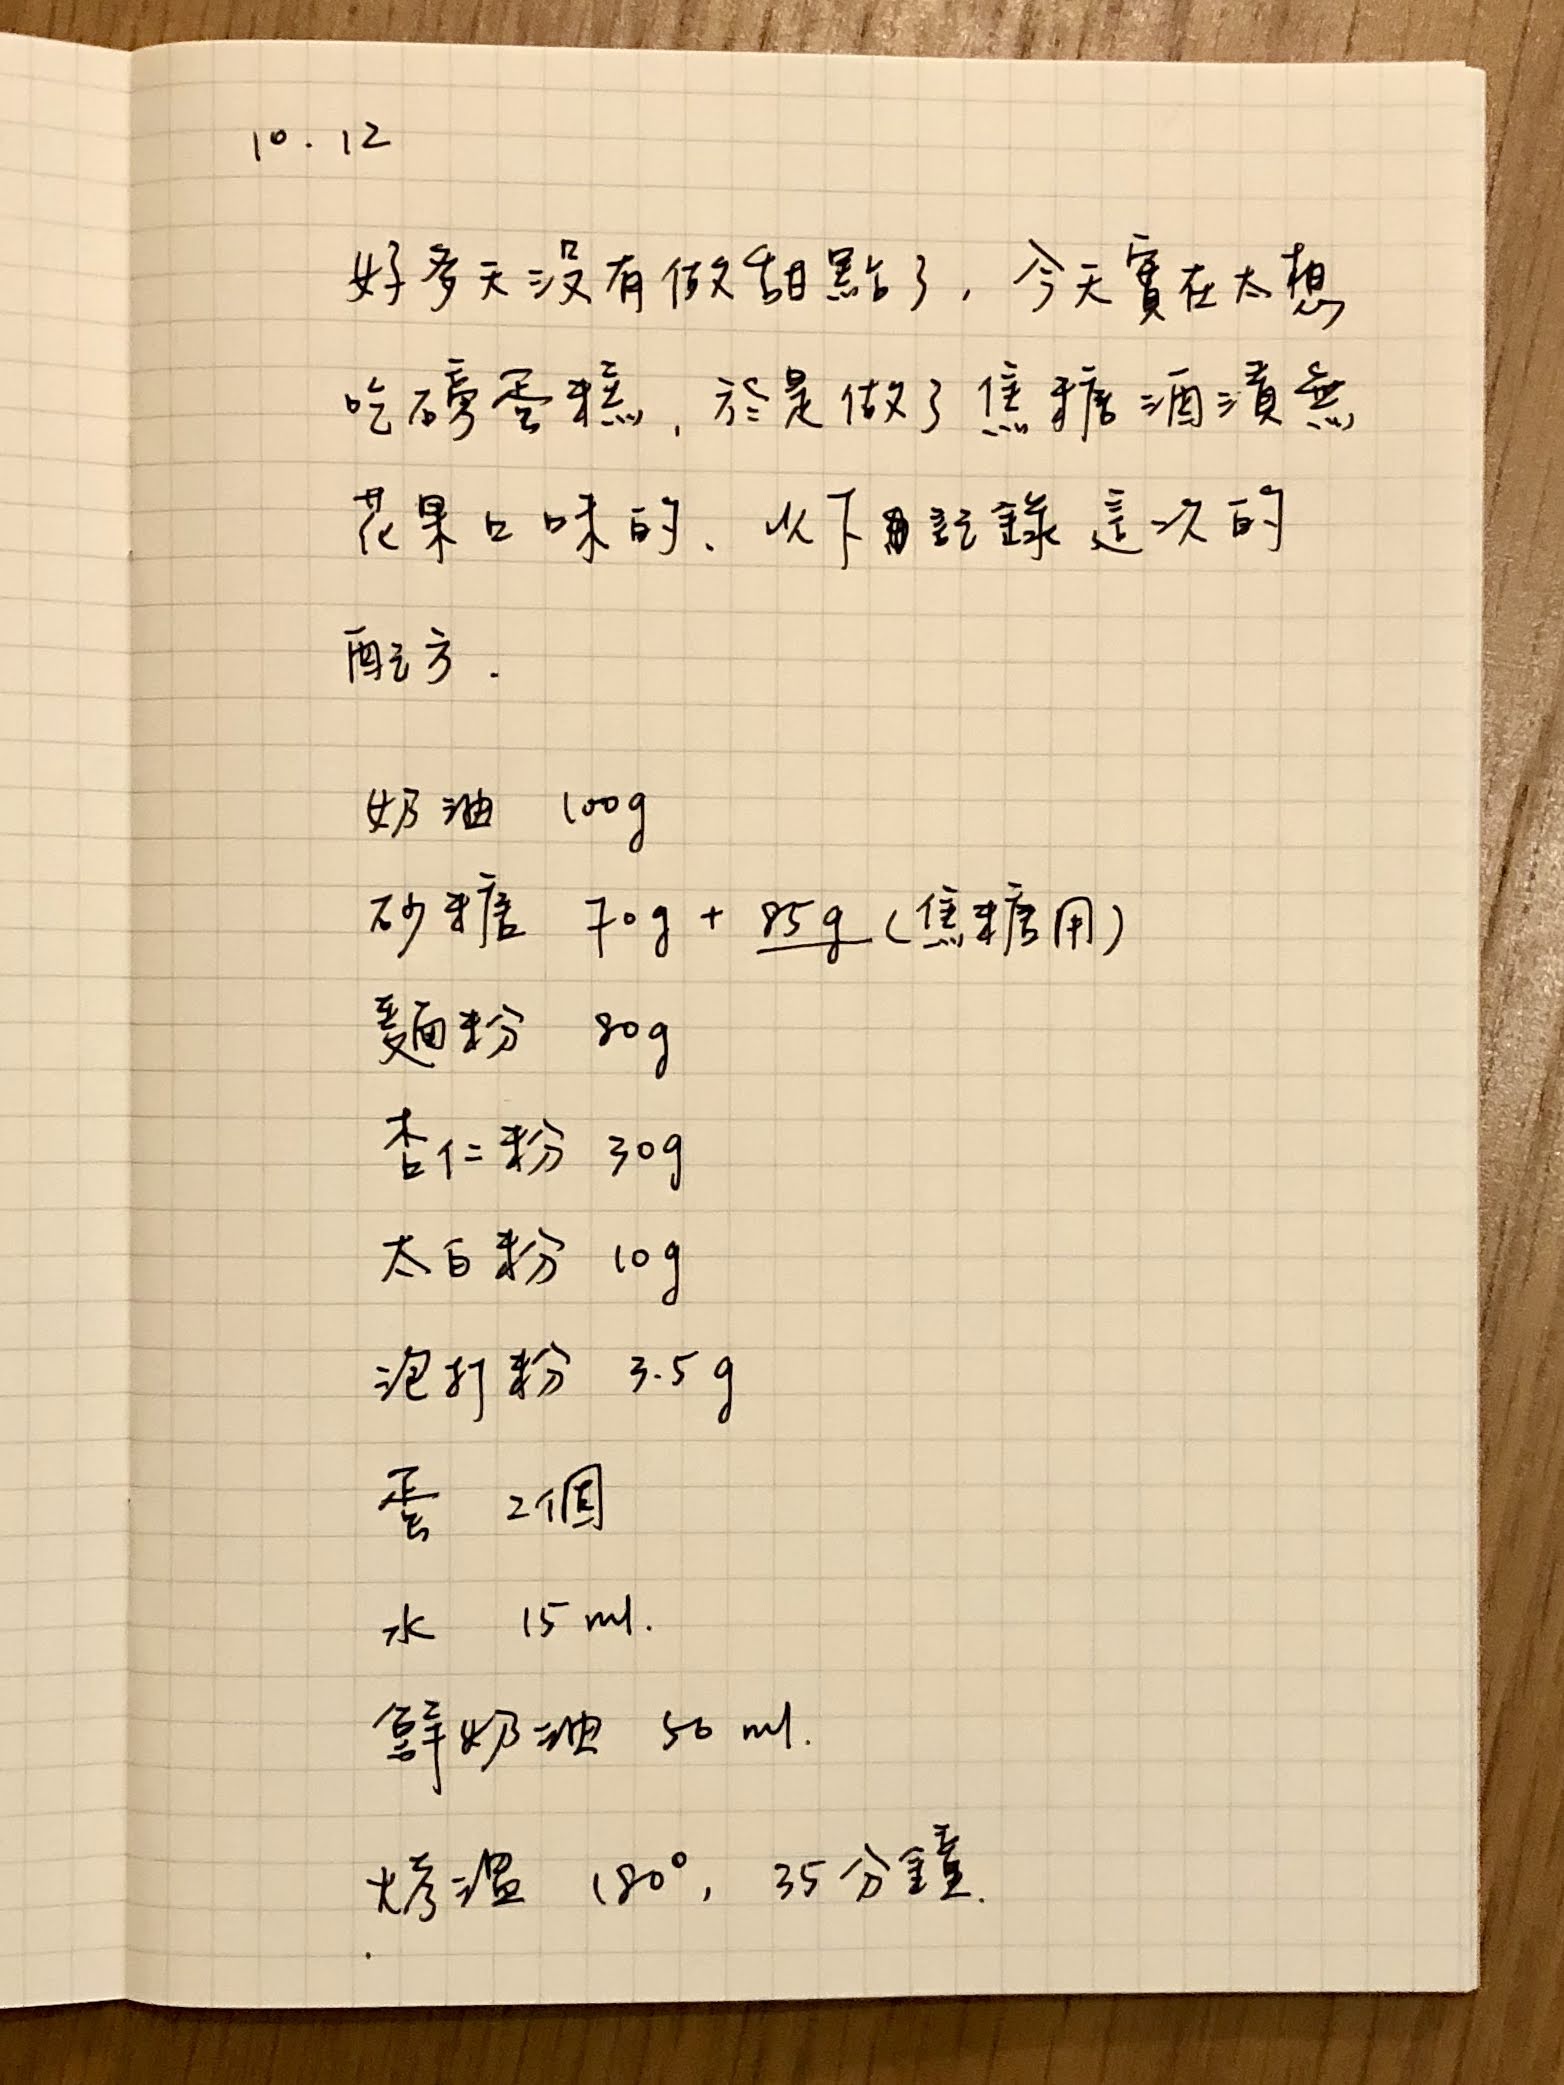 10.12
好多天沒有做甜點了，今天實在太想
吃磅蛋糕，於是做了焦糖酒漬無
花果口味的、以下記錄這次的
配方.
奶油 100g
砂糖 70g + 85g (焦糖用)
麵粉 80g
杏仁粉 30g
太白粉 10g
泡打粉 3.5g
蛋 2個
水 15ml.
鮮奶油 50ml.
烤溫 180°, 35分鐘.